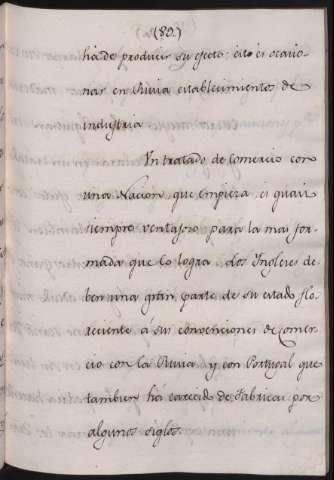 (89.)
ha de producir su efecto: esto es ocasio-
nar en Rusia establecimientos de
industria
Un tratado de Comercio con
una Nacion que empieza, es quasi
siempre ventajoso para la mas for-
mada que lo logra. Los Ingleses de-
ben una gran parte de su estado flo-
reciente à sus convenciones de comer-
cio con la Rusia y con Portugal que
tambien ha carecido de Fabricas por
algunos siglos.